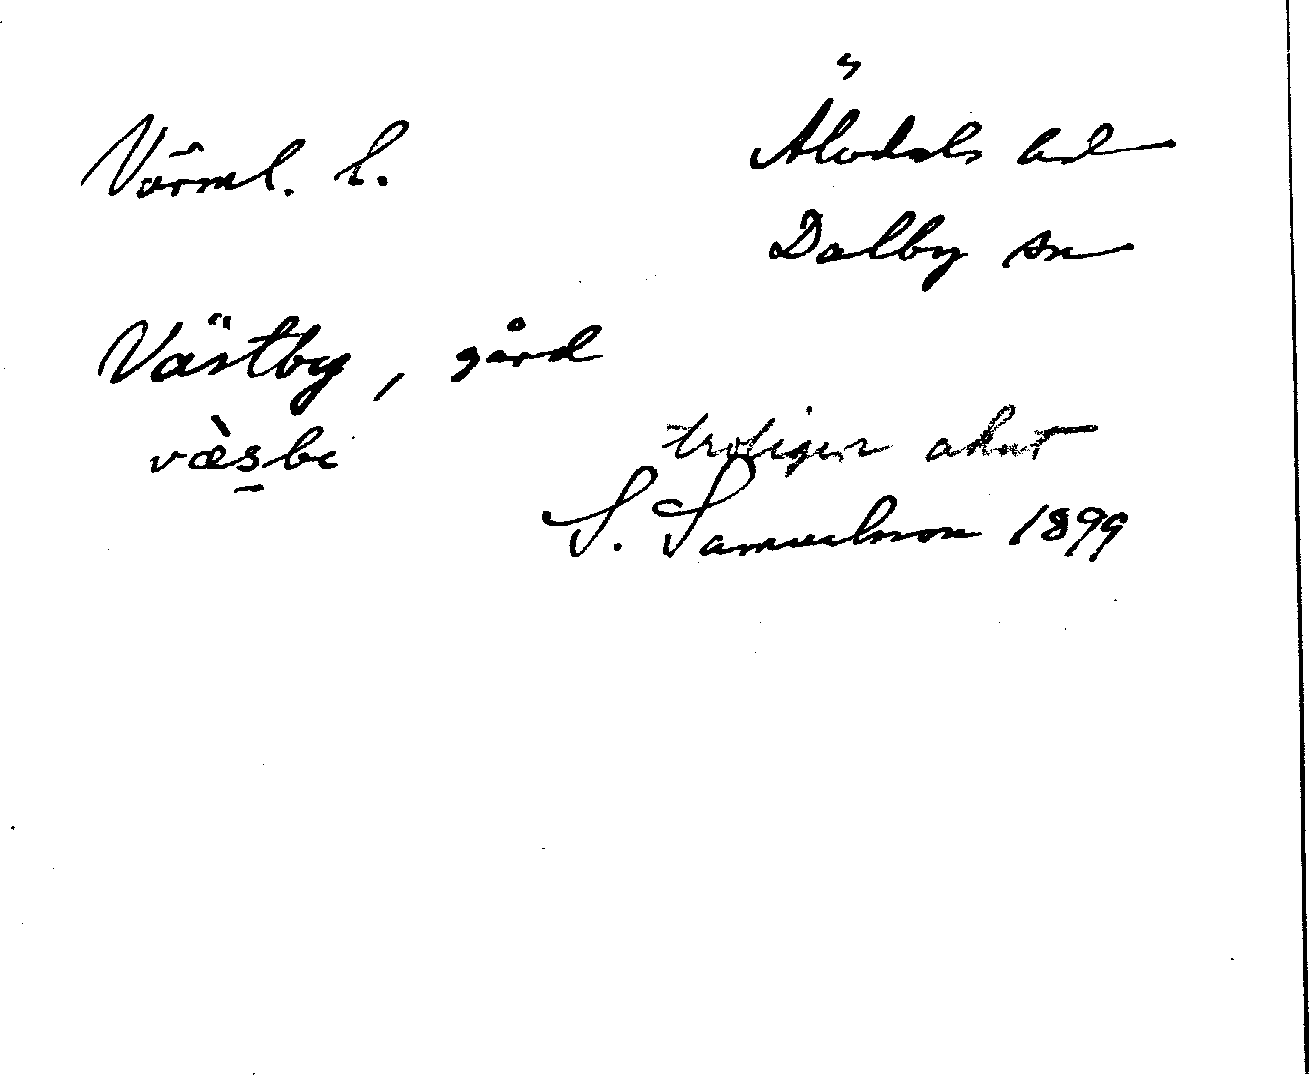 Värml. l.
Älvdals hd
Dalby sn
Västby, gård
væ̀s̠be
troligen akut
S. Samuelsson 1899